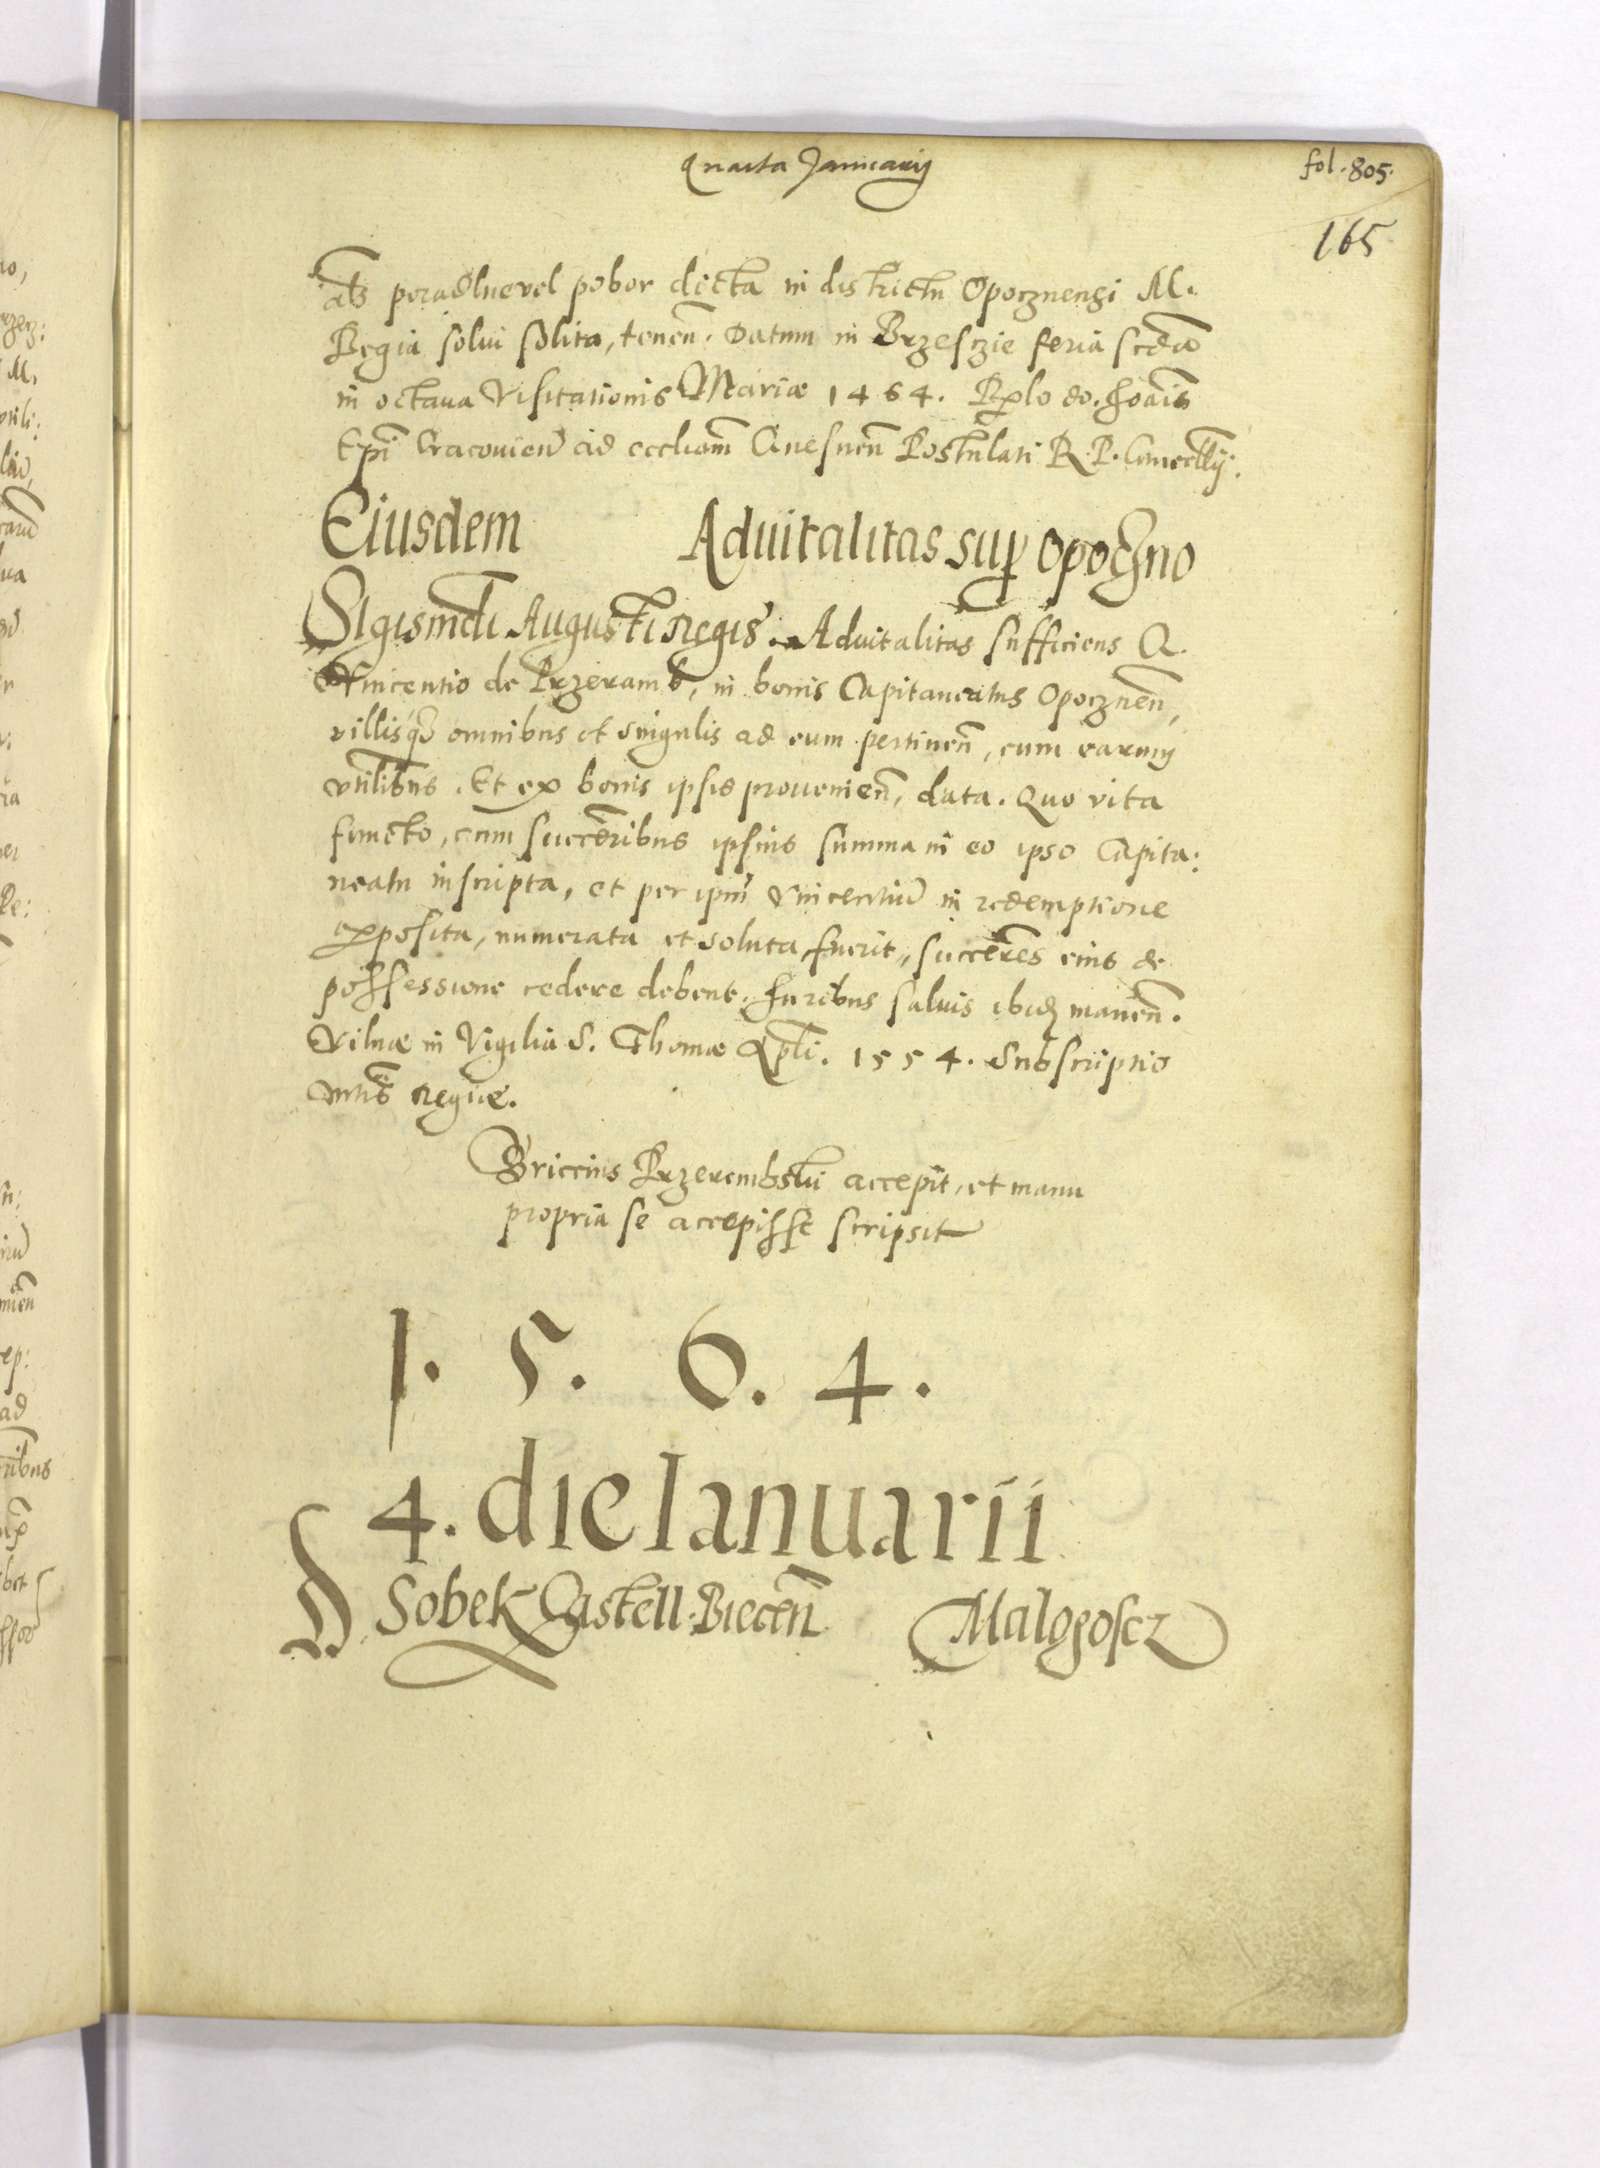 Quarta Januarij
fol. 805.
165
als poradlne vel pobor dicta in districtu Opocznensi M.
Regia solui solita, tenen̄. Datum in Brzesczie feria scd̄a
in octaua Visitationis Mariæ 1464. Rl̄o do. Joāis
Epī Cracouien̄ ad eccliam̄ Gnesnen̄ Postulati R. P.
Eiusdem Aduitalitas sup̱ Opoczno
Sigismd̄i Augusti Regis. Aduitalitas sufficiens G.
Vincentio de Przeramb, in bonis Capitaneatus Opocznen̄,
villisq̄ omnibus et singulis ad eum pertinen̄, cum earum
vtilibus. Et ex bonis ipsis prouenien̄, data. Quo vita
functo, cum succēribus ipsius summa in eo ipso Capita:
neatu inscripta, et per ipm̄ Vincentiū in redemptione
exposita, numerata et soluta fuerit, succēres eius de
possessione cedere debent. Juribus saluis ibid manen̄.
Vilnæ in Vigilia S. Thomæ Apl̄i. 1554. Subscriptio
mtis̄ Regiæ.
Briccius Przerembski accepit, et manu
propria se accepisse scripsit
1. 5. 6. 4.
4. die Ianuarii
D. Sobek Castell. Biecen̄ Malogoscz